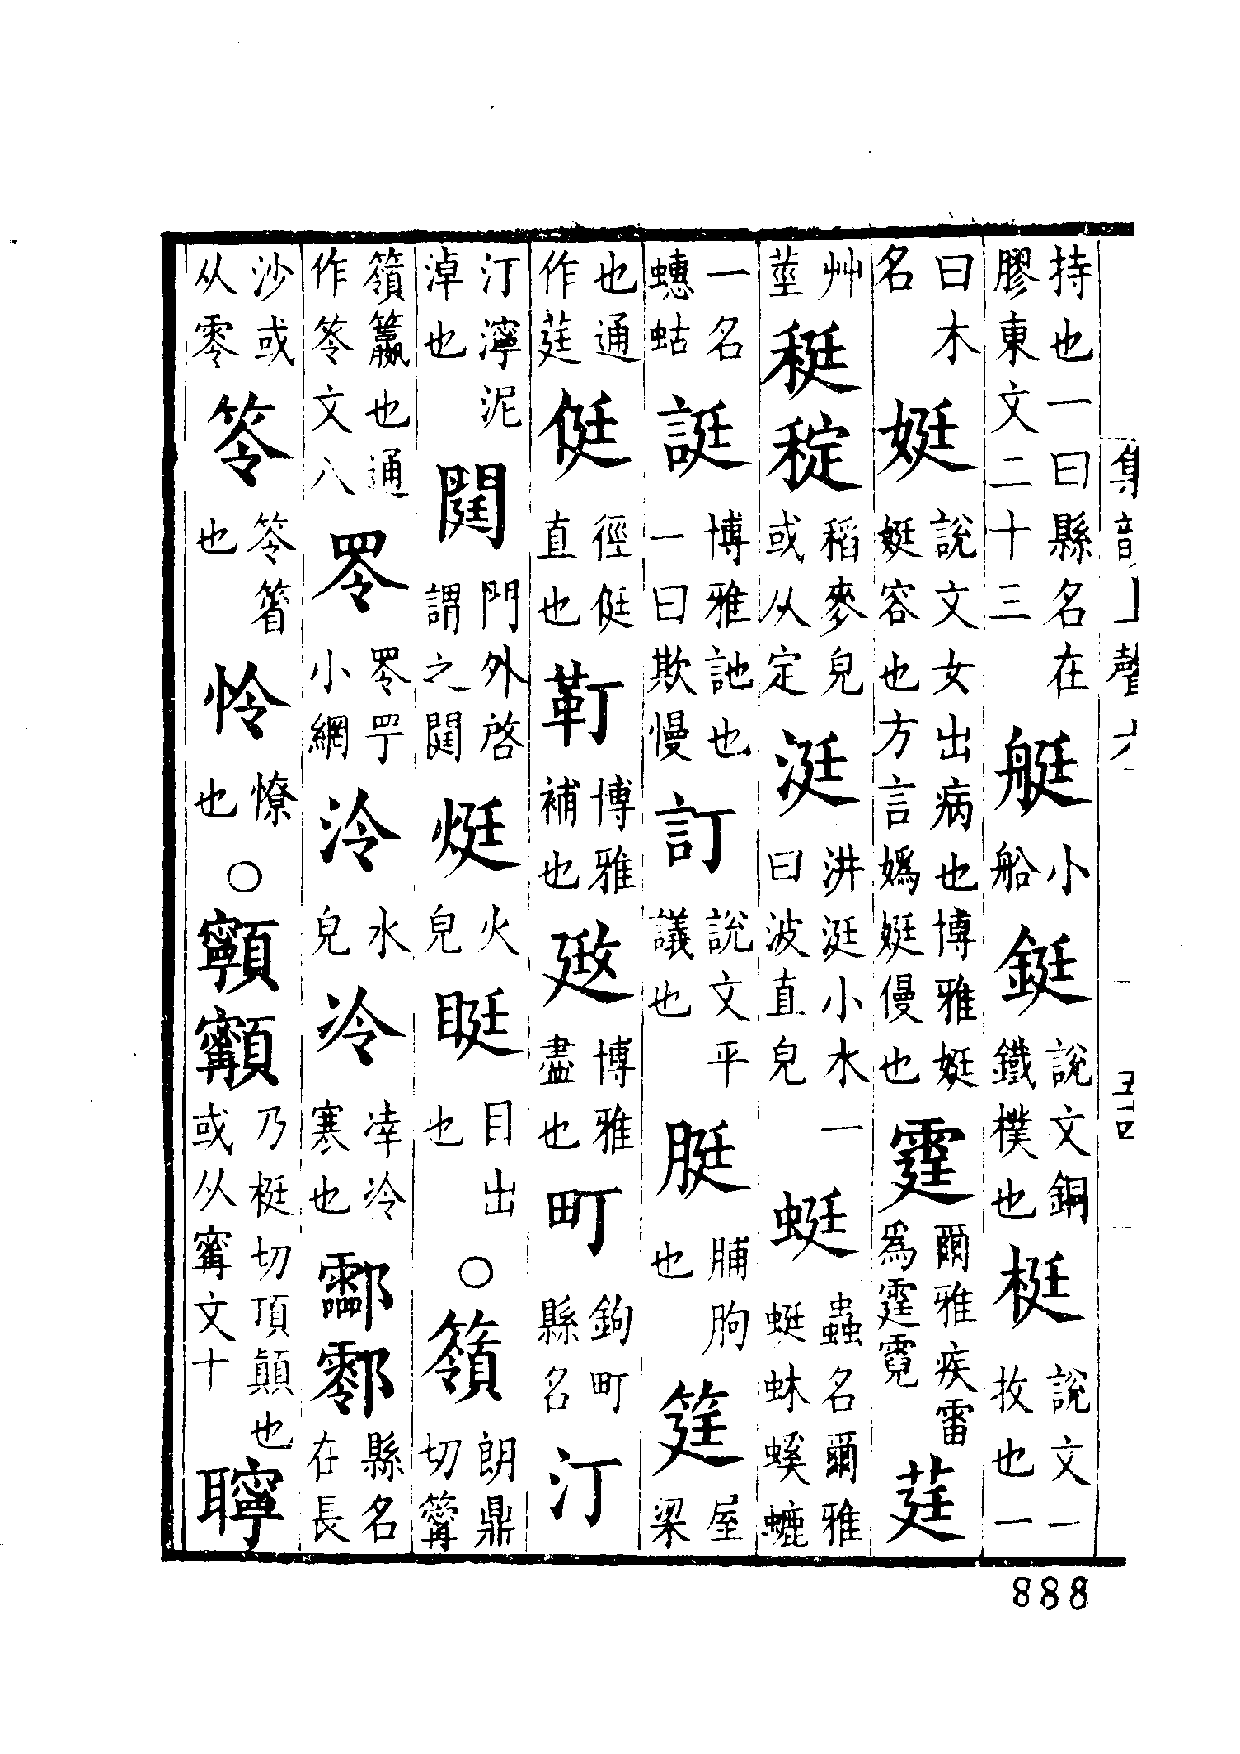 持也一曰縣名在膠東文二十三艇小船鋌說文銅鐵樸也梃說文一枚也一
曰木名娗說文女出病也博雅娗娗容也方言媯娗僈也霆爾雅疾雷爲霆霓莛
艸莖䅍稻麥皃或从定涏汫涏小水一曰波直皃蜓蟲名爾雅蜓蚞螇螰
一名蟪蛄誔博雅訑也一曰欺慢訂說文平議也脡脯朐也筳屋梁
也通作莛侹徑侹直也靪博雅補也博雅盡也町鉤町縣名汀
汀濘泥淖也閮門外啓謂之閮烶火皃目出也○朗鼎切
籯也通作笭文八罖罖罜小網泠水皃冷涬冷寒也酃縣名在長
沙或从零笭笭箵也怜憭也○乃梃切頂顛也或从寗文十聹
集韻上聲六
五十四
888